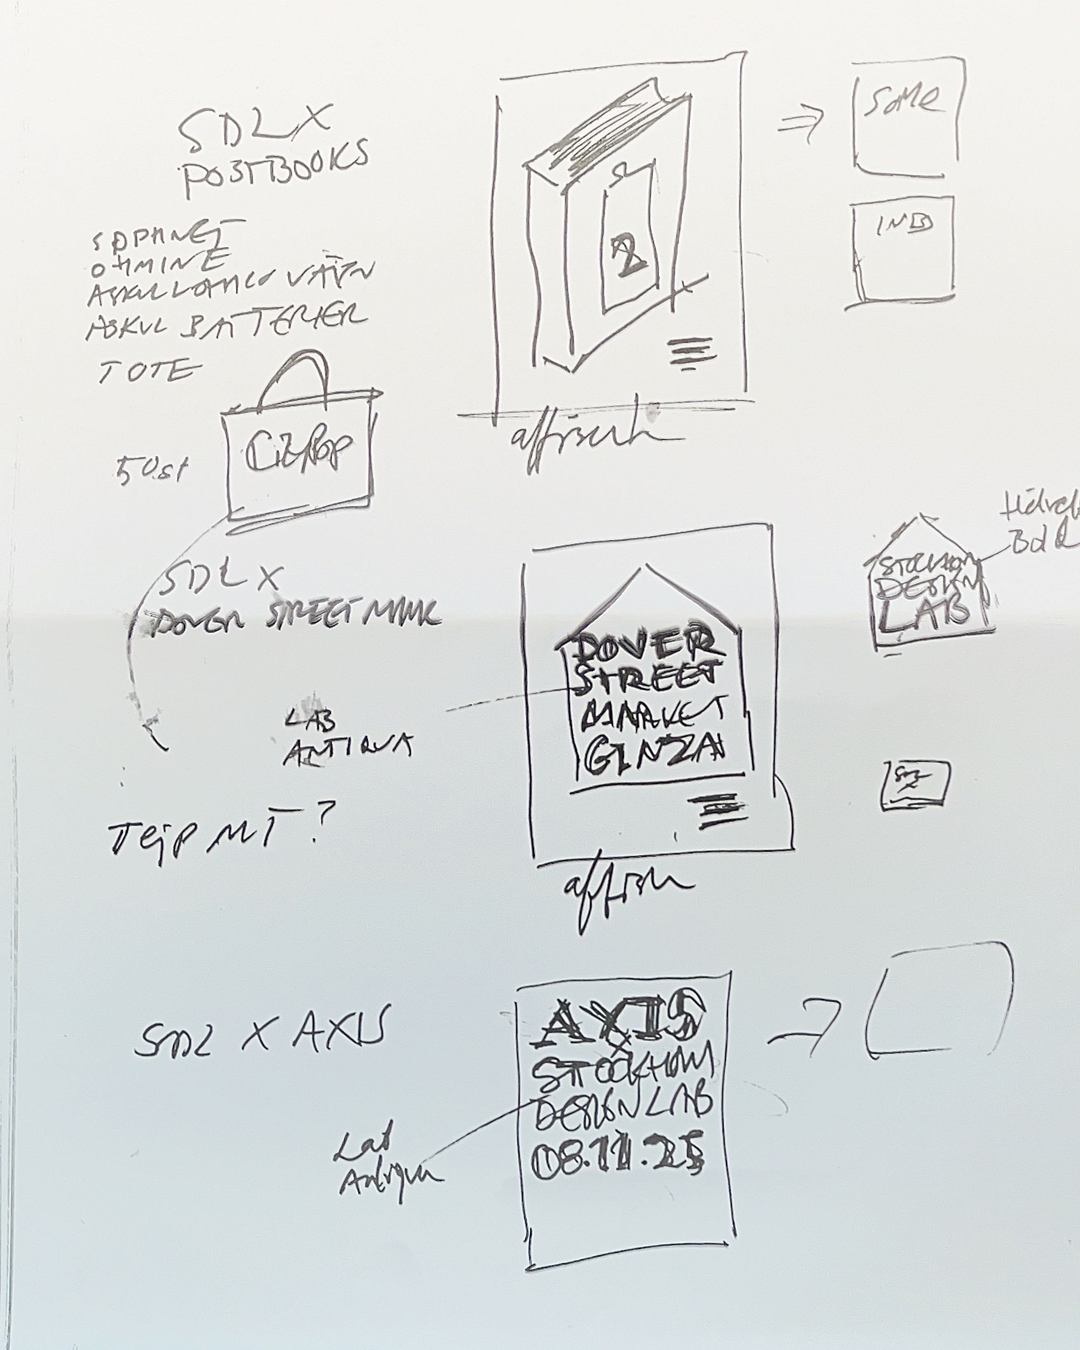 SDL X
POSTBOOKS
SOPHNET
OHMINE
ASKUL BATTERIER
TOTE
50st
SOME
IND
affisch
SDL X
DOVER STREET MARK
LAB
ANTIQUA
DOVER
STREET
MARKET
GINZA
STOCKHOLM
DESIGN
LAB
Tejp MT?
affisch
SDL X AXIS
AXIS
STOCKHOLM
DESIGN LAB
08.11.25
Lab
Antiqua